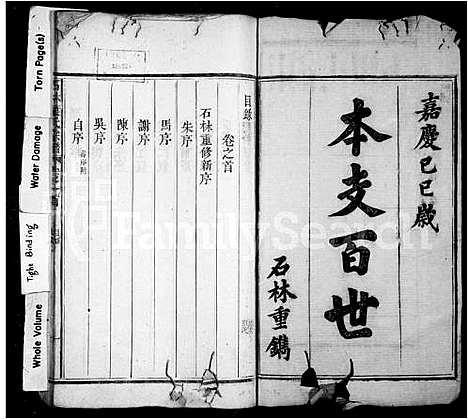 嘉慶己巳歲
本支百世
石林重鐫
目錄
卷之首
石林重修新序
朱序
馬序
謝序
陳序
吳序
自序
Torn Page(s)
Water Damage
Tight Binding
Whole Volume
FamilySearch